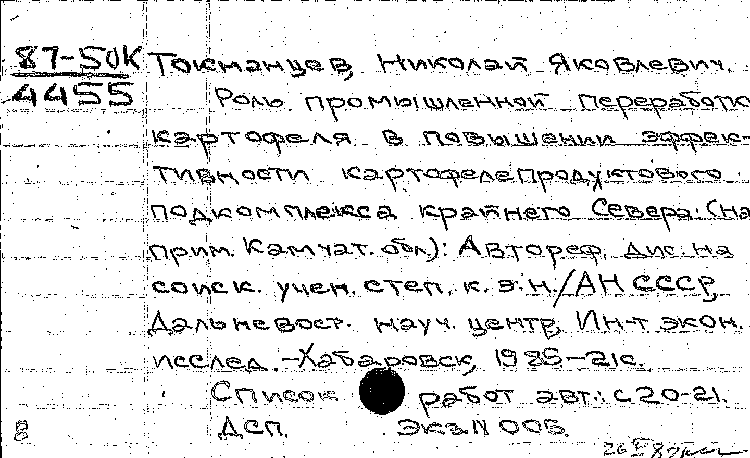 87-50К Токманцев, Николай Яковлевич.
4455 Роль промышленной переработк
картофеля в повышении эффек-
тивности картофелепродуктового
подкомплекса крайнего Севера: (на
прим. Камчат. обл.): Автореф. дис. на
соиск. учен. степ. к. э. н. / АН СССР,
Дальневост. науч. центр, Ин-т экон.
исслед. - Хабаровск, 1988 - 21с.
Список работ авт.: с 20-21.
8 ДСП. Экз N 005.